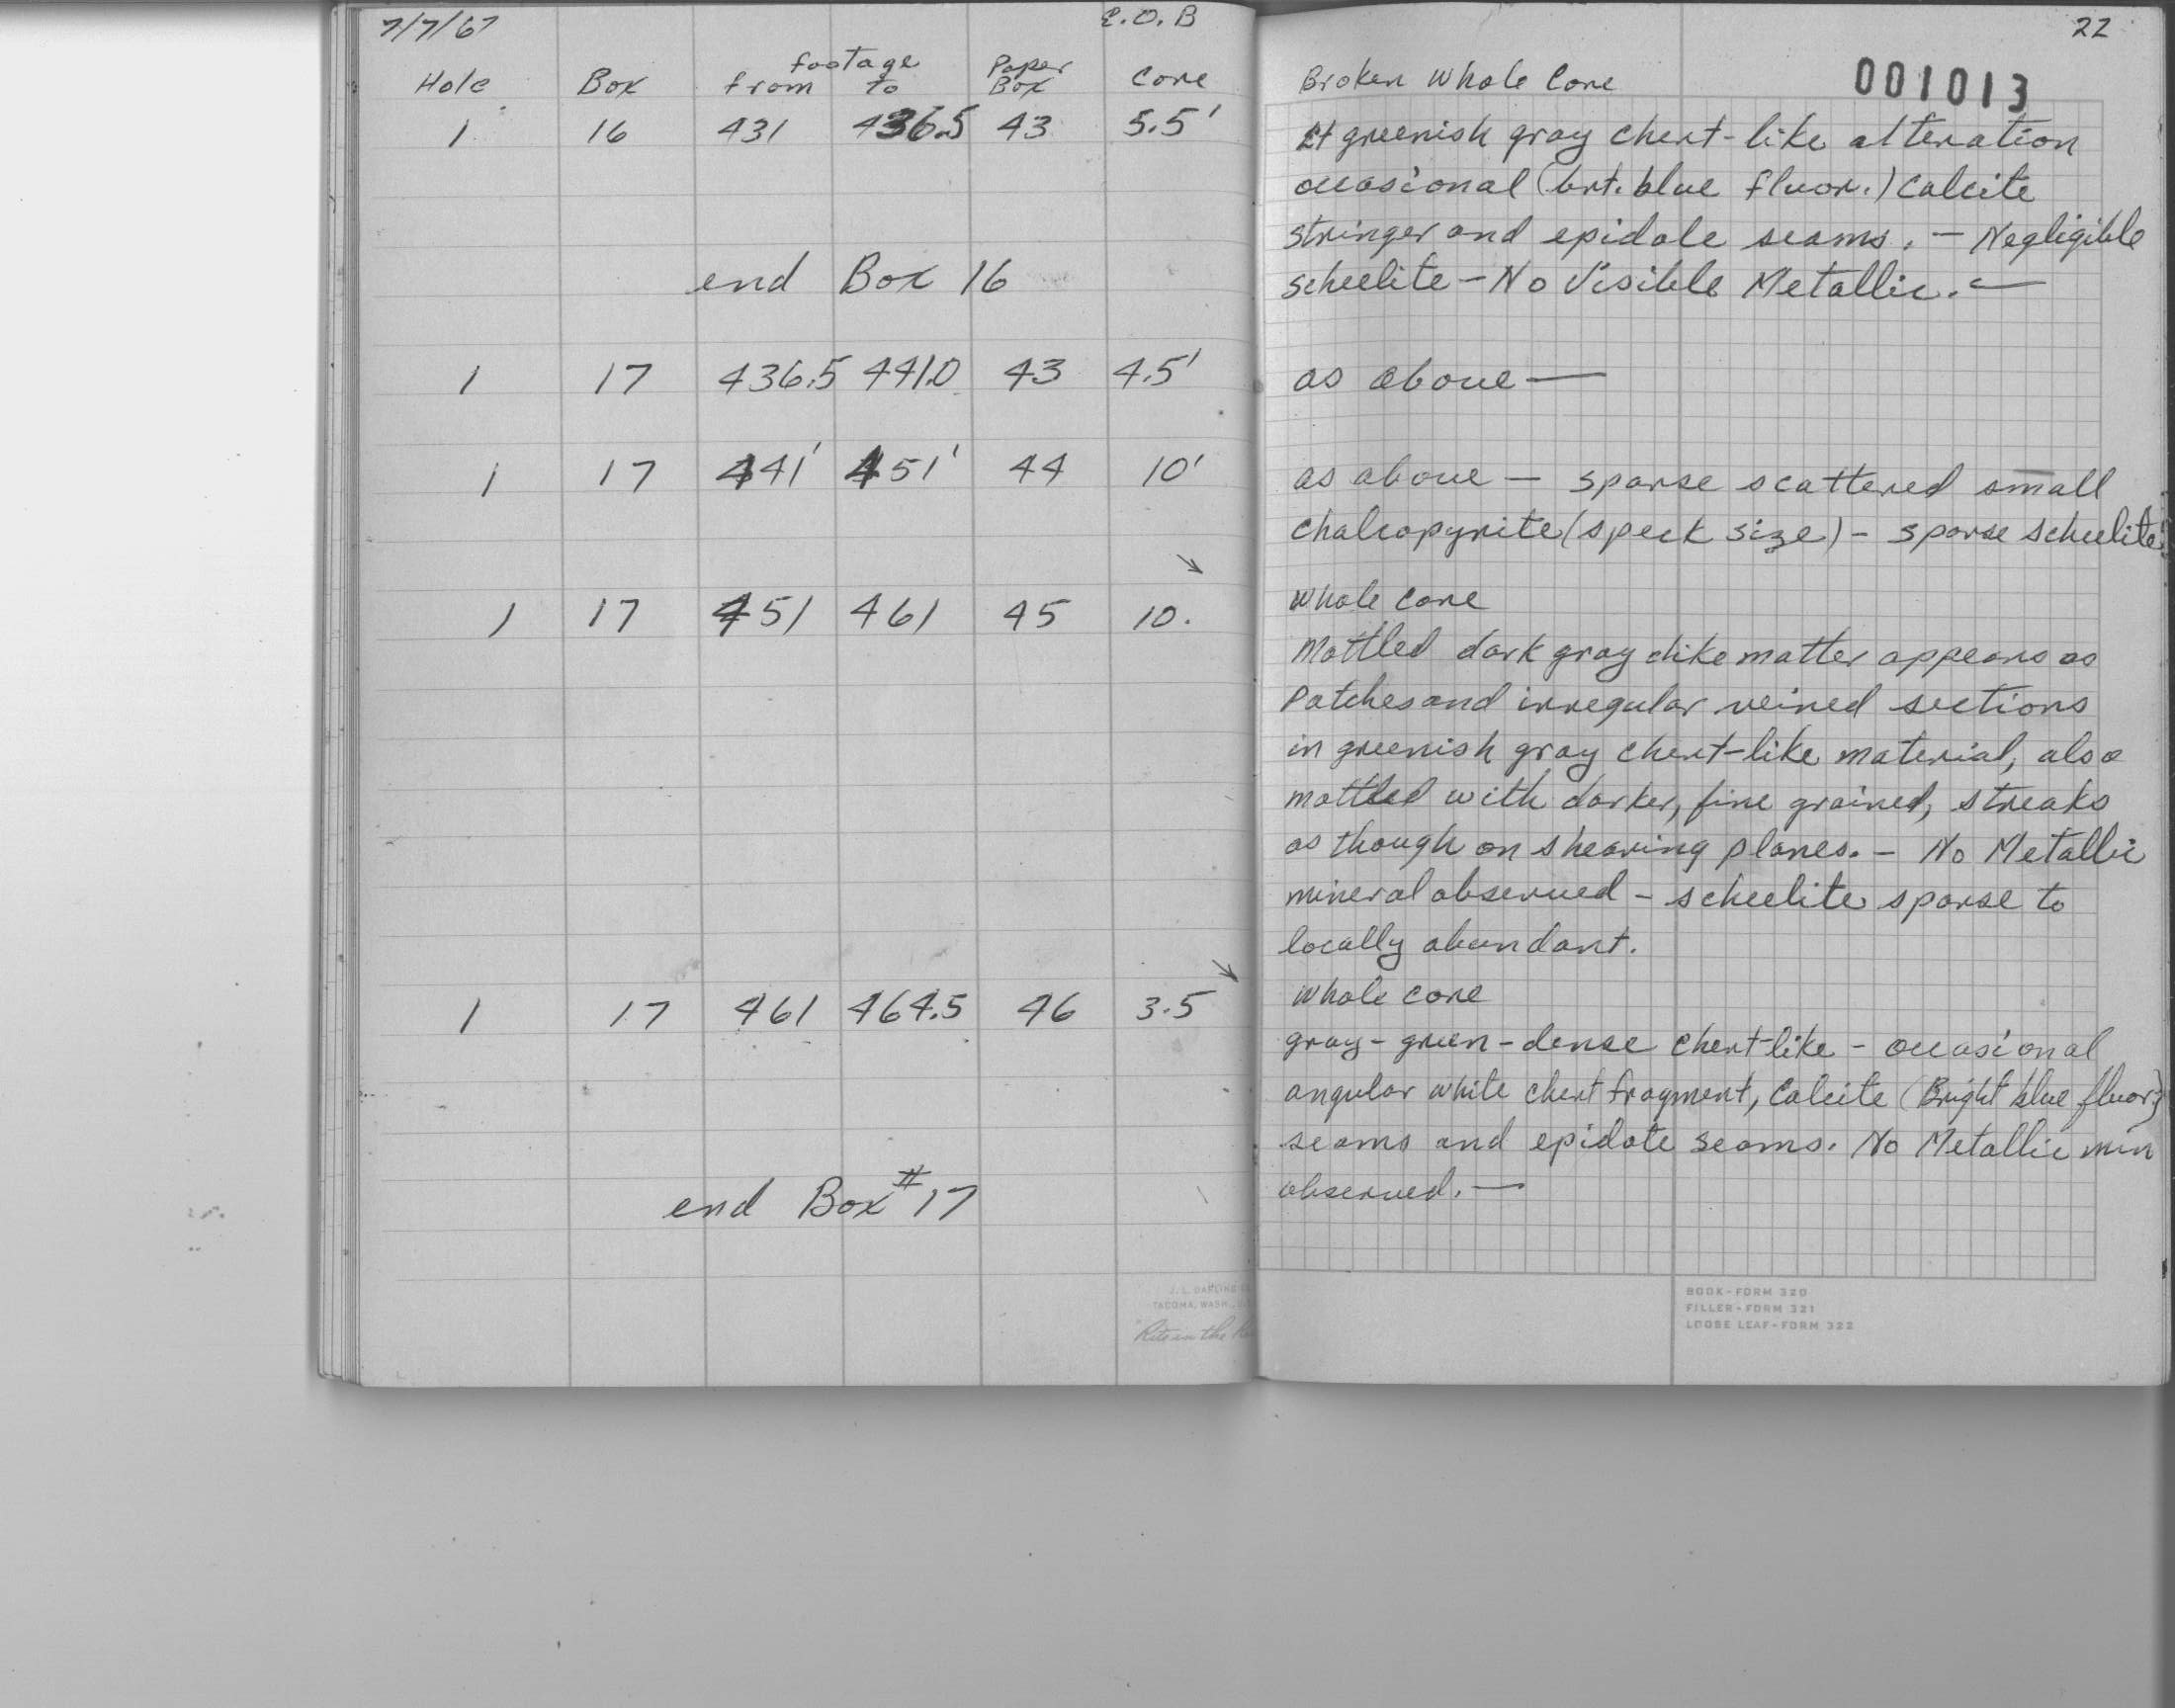 7/7/67 E.O.B
footage
Hole Box from to Paper Box Core
1 16 431 436.5 43 5.5'
end Box 16
1 17 436.5 441.0 43 4.5'
1 17 441' 451' 44 10'
1 17 451 461 45 10.
1 17 461 464.5 46 3.5
end Box #17
J. L. DARLING
TACOMA, WASH.,
"Rite in the
22
001013
Broken Whole Core
Lt greenish gray chert-like alteration
occasional (brt. blue fluor.) Calcite
stringer and epidote seams. – Negligible
scheelite – No Visible Metallic. —
as above —
as above — sparse scattered small
chalcopyrite (speck size) – sparse scheelite
Whole core
Mottled dark gray dike matter appears as
Patches and irregular veined sections
in greenish gray chert-like material, also
mottled with darker, fine grained, streaks
as though on shearing planes. – No Metallic
mineral observed – scheelite sparse to
locally abundant.
Whole core
gray-green-dense chert-like – occasional
angular white chert fragment, Calcite (Bright blue fluor)
seams and epidote seams. No Metallic min
observed. —
BOOK-FORM 320
FILLER-FORM 321
LOOSE LEAF-FORM 322